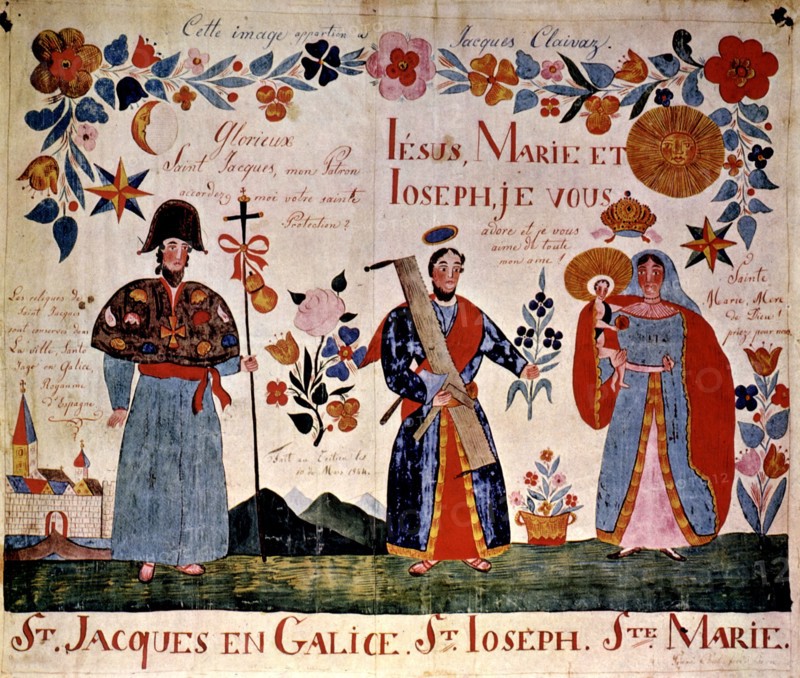 Cette image appartien a Jacques Claivaz.
Glorieux
Saint Jacques, mon Patron
accordezz moi votre sainte
Protection?
IÉSUS, MARIE ET
IOSEPH, JE VOUS
adore et je vous
aime de toute
mon ame!
Sainte
Marie, Mere
de Dieu!
priez pour nous
Les reliques de
Saint Jacques
sont conservée dans
La ville, Santo
Jago en Galice,
Royaume
d'Espagne
Fait au Tretien les
10 de Mars
ST. JACQUES EN GALICE. ST. IOSEPH. STE MARIE.